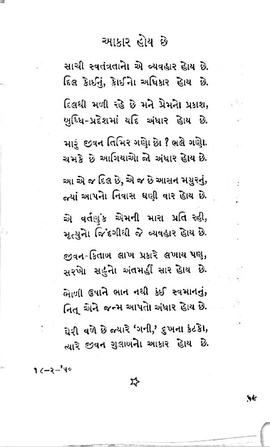 આકાર હોય છે
સાચી સ્વતંત્રતાનો એ વ્યવહાર હોય છે.
દિલ કોઈનું, કોઈનો અધિકાર હોય છે.
દિલથી મળી રહે છે મને પ્રેમનો પ્રકાશ,
બુધ્ધિ-પ્રદેશમાં યદિ અંધાર હોય છે.
મારું જીવન તિમિર ગણો છો ? ભલે ગણો.
ચમકે છે આગિયાઓ જો અંધાર હોય છે.
આ એ જ દિલ છે, એ જ છે આસન મયુરનું,
જ્યાં આપનો નિવાસ ઘણી વાર હોય છે.
એ વર્તણુંક એમની મારા પ્રતિ રહી,
મૃત્યુનો જિંદગીથી જે વ્યવહાર હોય છે.
જીવન-કિતાબ લાખ પ્રકારે લખાય પણ,
સરખો સહુનો અંતમહીં સાર હોય છે.
ભોળી ઉષાને ભાન નથી કંઈ સ્વમાનનું,
નિત્ એને જન્મ આપતો અંધાર હોય છે.
ઘેરી વળે છે જ્યારે ‘ગની,’ દુખના કંટકો,
ત્યારે જીવન ગુલાબનો આકાર હોય છે.
૧૮-૨-’૫૦
૫૯